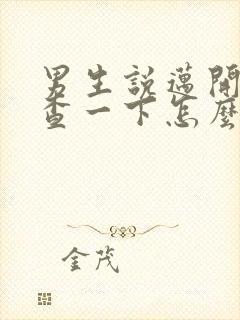 男生說邁開
查一下怎麼
金茂